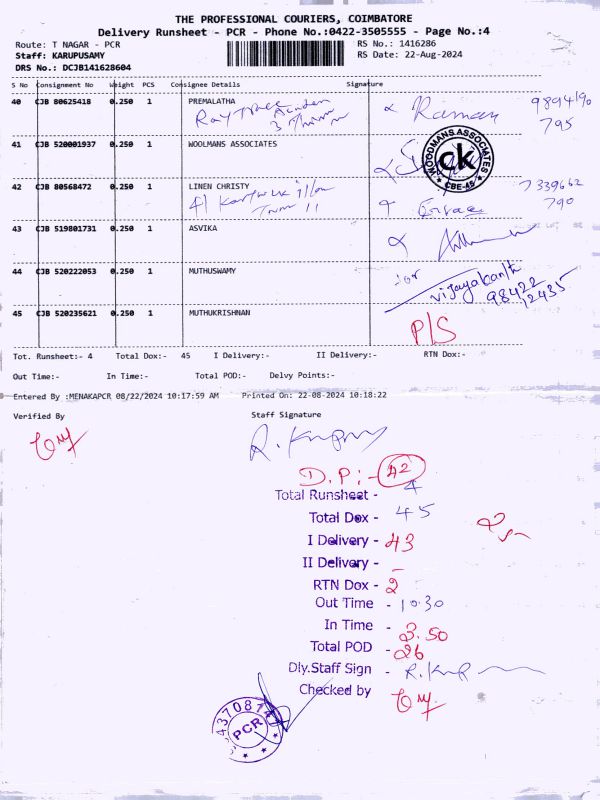 THE PROFESSIONAL COURIERS, COIMBATORE
Delivery Runsheet - PCR - Phone No.:0422-3505555 - Page No.:4
Route: T NAGAR - PCR
RS No.: 1416286
Staff: KARUPUSAMY
RS Date: 22-Aug-2024
DRS No.: DCJB141628604
S No Consignment No Weight PCS Consignee Details Signature
40 CJB 80625418 0.250 1 PREMALATHA
Raman
9894190
795
41 CJB 520001937 0.250 1 WOOLMANS ASSOCIATES
WOODMANS ASSOCIATES
ck
CBE-45
42 CJB 80568472 0.250 1 LINEN CHRISTY
7339662
790
43 CJB 519801731 0.250 1 ASVIKA
44 CJB 520222053 0.250 1 MUTHUSWAMY
for
vijayakanth
98422
12435
45 CJB 520235621 0.250 1 MUTHUKRISHNAN
P/S
Tot. Runsheet:- 4 Total Dox:- 45 I Delivery:- II Delivery:- RTN Dox:-
Out Time:- In Time:- Total POD:- Delvy Points:-
Entered By :MENAKAPCR 08/22/2024 10:17:59 AM Printed On: 22-08-2024 10:18:22
Verified By Staff Signature
D.P:- 42
Total Runsheet - 4
Total Dox - 45
I Delivery - 43
II Delivery - –
RTN Dox - 2
Out Time - 10.30
In Time - 3.50
Total POD - 26
Dly.Staff Sign -
Checked by -
PCR